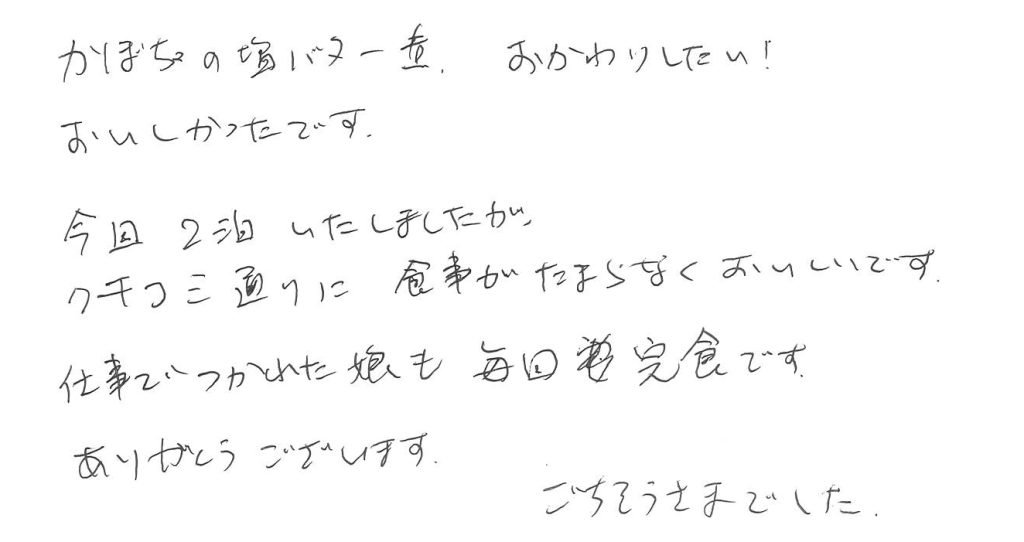 かぼちゃの塩バター煮. おかわりしたい!
おいしかったです.
今回 2泊 いたしましたが、
クチコミ通りに 食事がたまらなくおいしいです.
仕事でつかれた娘も 毎回 完食です.
ありがとうございます.
ごちそうさまでした.